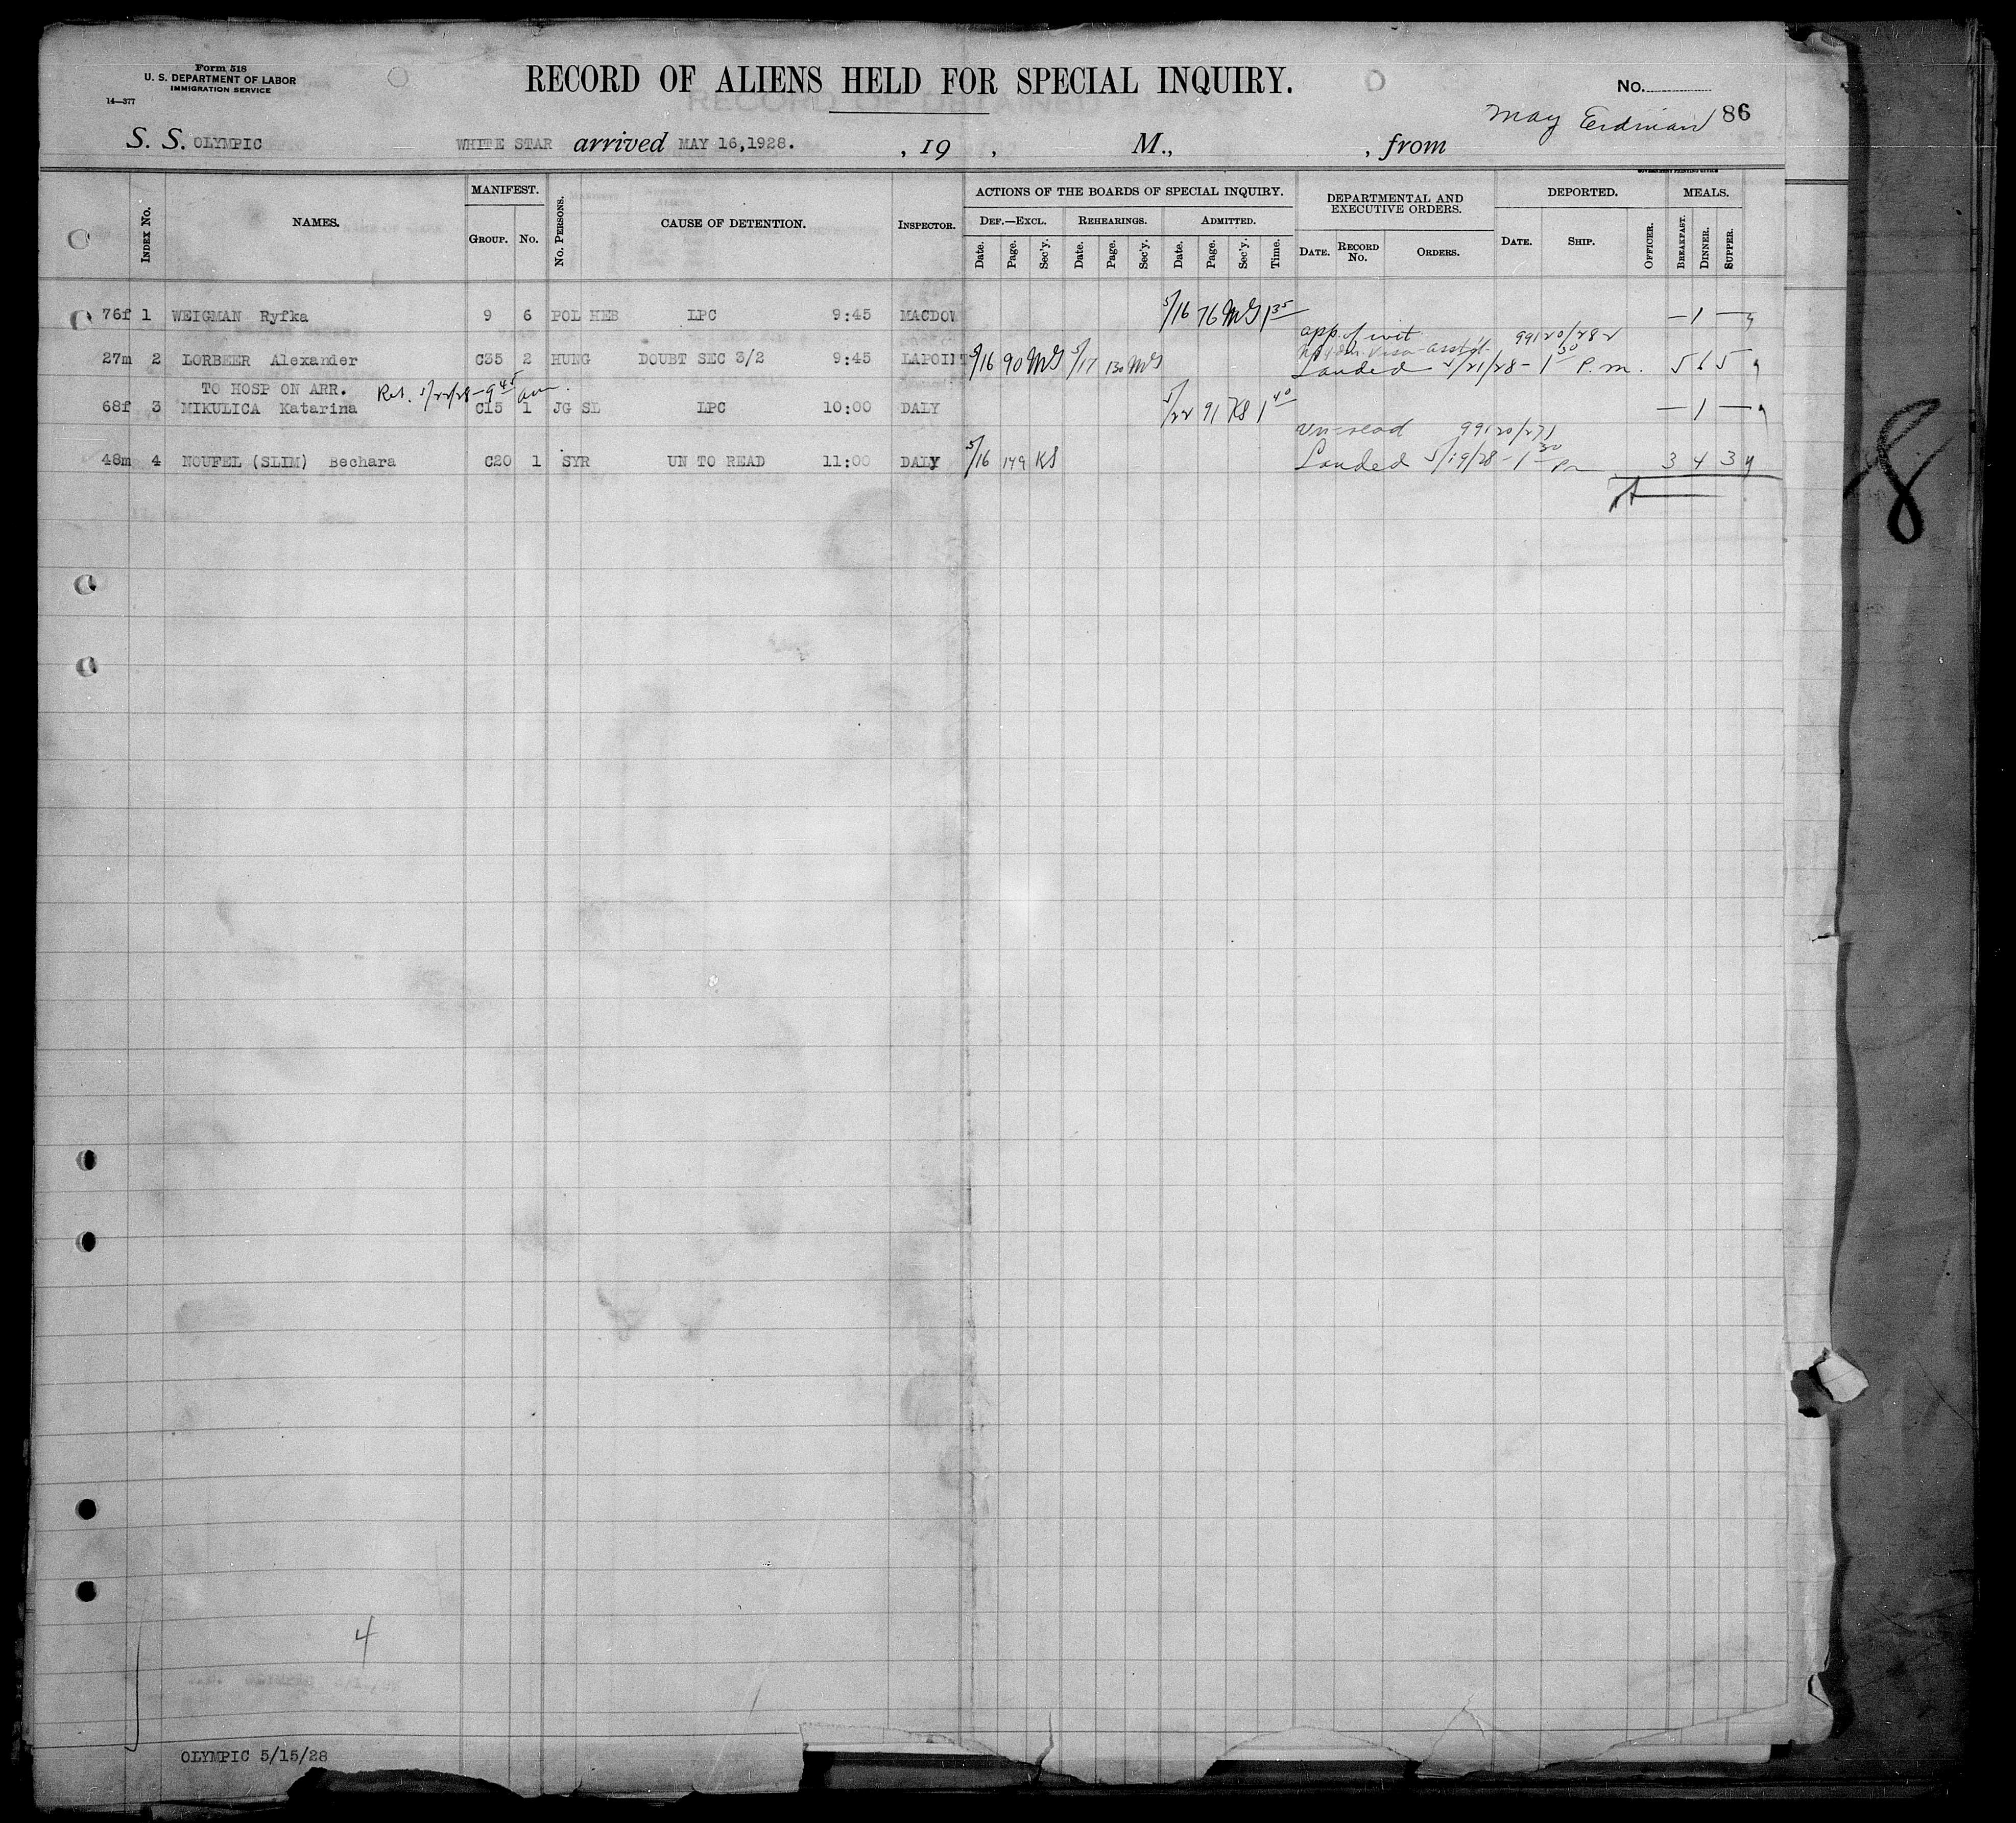 Form 518
U. S. DEPARTMENT OF LABOR
IMMIGRATION SERVICE
14—377
RECORD OF ALIENS HELD FOR SPECIAL INQUIRY.
No.
May Erdman 86
S. S. OLYMPIC WHITE STAR arrived MAY 16,1928. , 19 , M., , from
GOVERNMENT PRINTING OFFICE
INDEX No. NAMES. MANIFEST. GROUP. No. No. PERSONS. CAUSE OF DETENTION. INSPECTOR.
ACTIONS OF THE BOARDS OF SPECIAL INQUIRY. DEF.—EXCL. REHEARINGS. ADMITTED.
Date. Page. Sec'y. Date. Page. Sec'y. Date. Page. Sec'y. Time.
DEPARTMENTAL AND EXECUTIVE ORDERS. DATE. RECORD No. ORDERS.
DEPORTED. DATE. SHIP. OFFICER. MEALS. BREAKFAST. DINNER. SUPPER.
76f 1 WEIGMAN Ryfka 9 6 POL HEB LPC 9:45 MACDOW 5/16 76 MG 1 35 — 1 —
app. of wit. 99120/282
27m 2 LORBEER Alexander C35 2 HUNG DOUBT SEC 3/2 9:45 LAPOINT 5/16 90 MG 5/17 130 MG Landed 5/21/28 – 1 30 P.m. 5 6 5
TO HOSP ON ARR. Ret. 5/22/28 – 9 45 am.
68f 3 MIKULICA Katarina C15 1 JG SL LPC 10:00 DALY 5/22 91 KS 1 40 — 1 —
un-read 99120/271
48m 4 NOUFEL (SLIM) Bechara C20 1 SYR UN TO READ 11:00 DALY 5/16 149 KS Landed 5/19/28 – 1 30 Pm 3 4 3
8
4
OLYMPIC 5/15/28